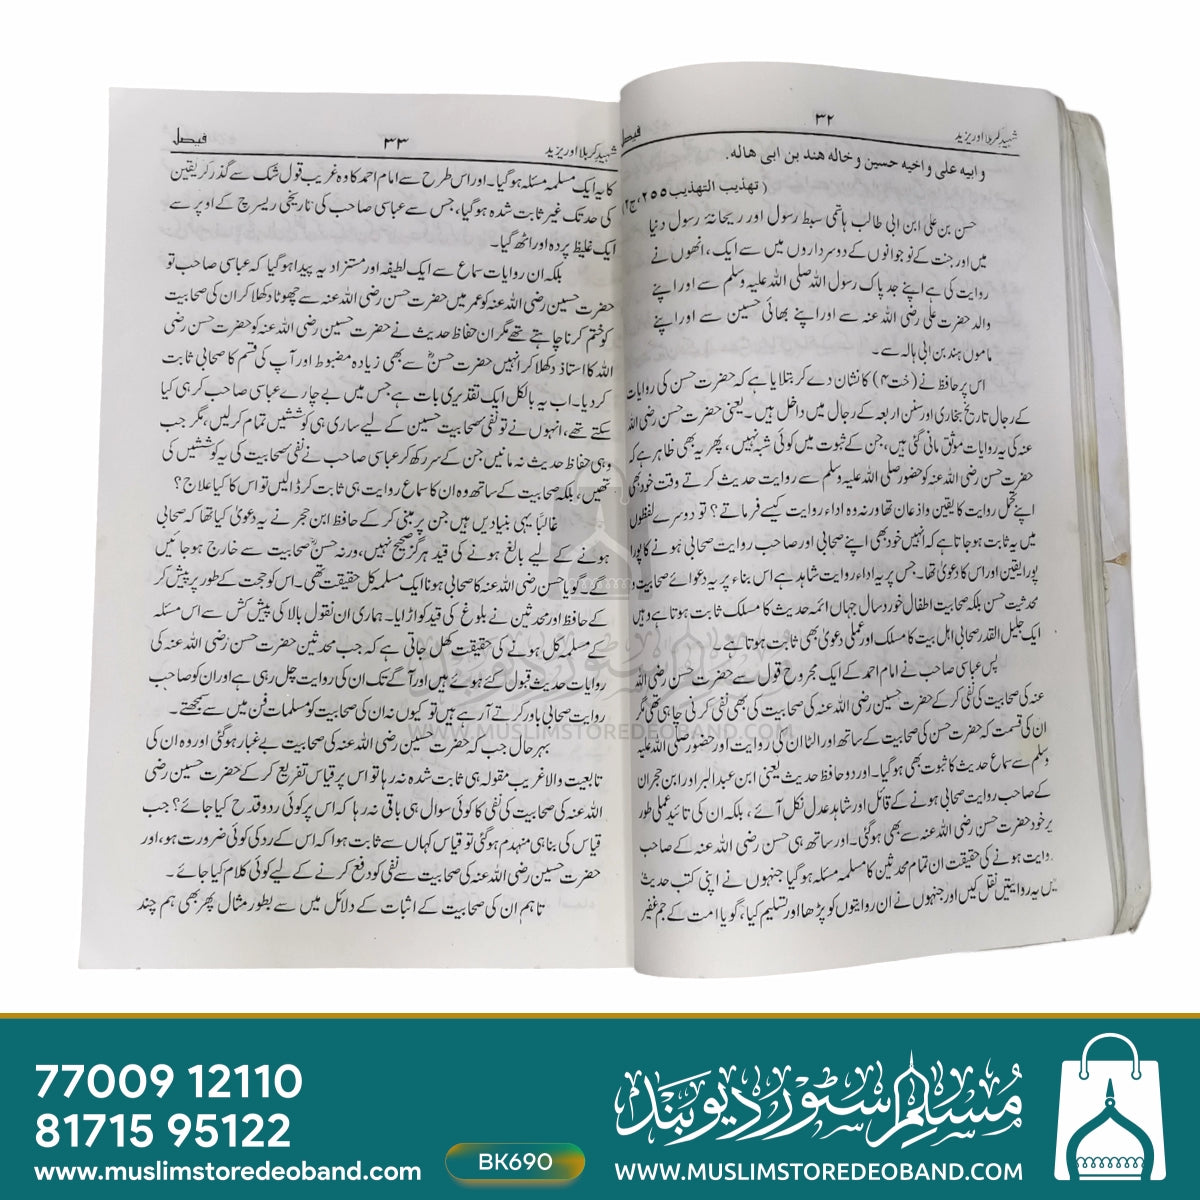 شہید کربلا اور یزید ۳۲ فیصل
و ابیه علی و اخیه حسین و خاله هند بن ابی هاله.
(تهذیب التهذیب ۲۵۵، ج۲)
حسن بن علی ابن ابی طالب ہاشمی سبط رسول اور ریحانۂ رسول دنیا
میں اور جنت کے نوجوانوں کے دو سرداروں میں سے ایک، انھوں نے
روایت کی ہے اپنے جد پاک رسول اللہ صلی اللہ علیہ وسلم سے اور اپنے
والد حضرت علی رضی اللہ عنہ سے اور اپنے بھائی حسین سے اور اپنے
ماموں ہند بن ابی ہالہ سے۔
اس پر حافظ نے (خت ۴) کا نشان دے کر بتلایا ہے کہ حضرت حسن کی روایات
کے رجال تاریخ بخاری اور سنن اربعہ کے رجال میں داخل ہیں۔ یعنی حضرت حسن رضی اللہ
عنہ کی یہ روایات موثق مانی گئی ہیں، جن کے ثبوت میں کوئی شبہ نہیں، پھر یہ بھی ظاہر ہے کہ
حضرت حسن رضی اللہ عنہ کو حضور صلی اللہ علیہ وسلم سے روایت حدیث کرتے وقت خود بھی
اپنے تحمل روایت کا یقین واذعان تھا ورنہ وہ اداء روایت کیسے فرماتے؟ تو دوسرے لفظوں
میں یہ ثابت ہو جاتا ہے کہ انہیں خود بھی اپنے صحابی اور صاحب روایت صحابی ہونے کا پورا
پورا یقین اور اس کا دعویٰ تھا۔ جس پر یہ اداء روایت شاہد ہے اس بناء پر یہ دعوائے صحابیت و
محدثیت حسن بلکہ صحابیت اطفال خورد سال جہاں ائمہ حدیث کا مسلک ثابت ہوتا ہے وہیں
ایک جلیل القدر صحابی اہل بیت کا مسلک اور عملی دعویٰ بھی ثابت ہوتا ہے۔
پس عباسی صاحب نے امام احمد کے ایک مجروح قول سے حضرت حسن رضی اللہ
عنہ کی صحابیت کی نفی کر کے حضرت حسین رضی اللہ عنہ کی صحابیت کی بھی نفی کرنی چاہی تھی مگر
ان کی قسمت کہ حضرت حسن کی صحابیت کے ساتھ اور الٹا ان کی روایت اور حضور صلی اللہ علیہ
وسلم سے سماع حدیث کا ثبوت بھی ہو گیا۔ اور دو حافظ حدیث یعنی ابن عبدالبر اور ابن حجر ان
کے صاحب روایت صحابی ہونے کے قائل اور شاہد عدل نکل آئے، بلکہ ان کی تائید عملی طور
پر خود حضرت حسن رضی اللہ عنہ سے بھی ہو گئی۔ اور ساتھ ہی حسن رضی اللہ عنہ کے صاحب
روایت ہونے کی حقیقت ان تمام محدثین کا مسلمہ مسئلہ ہو گیا جنہوں نے اپنی کتب حدیث
میں یہ روایتیں نقل کیں اور جنہوں نے ان روایتوں کو پڑھا اور تسلیم کیا، گویا امت کے جم غفیر
شہید کربلا اور یزید ۳۳ فیصل
کا یہ ایک مسلمہ مسئلہ ہو گیا۔ اور اس طرح سے امام احمد کا وہ غریب قول شک سے گذر کر یقین
کی حد تک غیر ثابت شدہ ہو گیا، جس سے عباسی صاحب کی تاریخی ریسرچ کے اوپر سے
ایک غلیظ پردہ اور اٹھ گیا۔
بلکہ ان روایات سماع سے ایک لطیفہ اور مستزاد یہ پیدا ہو گیا کہ عباسی صاحب تو
حضرت حسین رضی اللہ عنہ کو عمر میں حضرت حسن رضی اللہ عنہ سے چھوٹا دکھلا کر ان کی صحابیت
کو ختم کرنا چاہتے تھے مگر ان حفاظ حدیث نے حضرت حسین رضی اللہ عنہ کو حضرت حسن رضی
اللہ کا استاذ دکھلا کر انہیں حضرت حسنؓ سے بھی زیادہ مضبوط اور آپ کی قسم کا صحابی ثابت
کر دیا۔ اب یہ بالکل ایک تقدیری بات ہے جس میں بے چارے عباسی صاحب کر ہی کیا
سکتے تھے، انہوں نے تو نفی صحابیت حسین کے لیے ساری ہی کوششیں تمام کر لیں، مگر جب
وہی حفاظ حدیث نہ مانیں جن کے سر رکھ کر عباسی صاحب نے نفی صحابیت کی یہ کوششیں کی
تھیں، بلکہ صحابیت کے ساتھ وہ ان کا سماع روایت ہی ثابت کر ڈالیں تو اس کا کیا علاج؟
غالباً یہی بنیادیں ہیں جن پر مبنی کر کے حافظ ابن حجر نے یہ دعویٰ کیا تھا کہ صحابی
ہونے کے لیے بالغ ہونے کی قید ہرگز صحیح نہیں، ورنہ حسنؓ صحابیت سے خارج ہو جائیں
گے۔ گویا حسن رضی اللہ عنہ کا صحابی ہونا ایک مسلمہ کل حقیقت تھی۔ اس کو حجت کے طور پر پیش کر
کے حافظ اور محدثین نے بلوغ کی قید کو اڑایا۔ ہماری ان نقول بالا کی پیش کش سے اس مسئلہ
کے مسلمہ کل ہونے کی حقیقت کھل جاتی ہے کہ جب محدثین حضرت حسن رضی اللہ عنہ کی
روایات حدیث قبول کئے ہوئے ہیں اور آگے تک ان کی روایت چل رہی ہے اور ان کو صاحب
روایت صحابی باور کرتے آ رہے ہیں تو کیوں نہ ان کی صحابیت کو مسلمات فن میں سے سمجھتے۔
بہر حال جب کہ حضرت حسین رضی اللہ عنہ کی صحابیت بے غبار ہو گئی اور وہ ان کی
تابعیت والا غریب مقولہ ہی ثابت شدہ نہ رہا تو اس پر قیاس تفریع کر کے حضرت حسین رضی
اللہ عنہ کی صحابیت کی نفی کا کوئی سوال ہی باقی نہ رہا کہ اس پر کوئی رد و قدح کیا جائے؟ جب
قیاس کی بنا ہی منہدم ہو گئی تو قیاس کہاں سے ثابت ہوا کہ اس کے رد کی کوئی ضرورت ہو، اور
حضرت حسین رضی اللہ عنہ کی صحابیت سے نفی کو دفع کرنے کے لیے کوئی کلام کیا جائے۔
تاہم ان کی صحابیت کے اثبات کے دلائل میں سے بطور مثال پھر بھی ہم چند
مسلم سٹور دیوبند
WWW.MUSLIMSTOREDEOBAND.COM
77009 12110
81715 95122
www.muslimstoredeoband.com
BK690
مسلم سٹور دیوبند
WWW.MUSLIMSTOREDEOBAND.COM